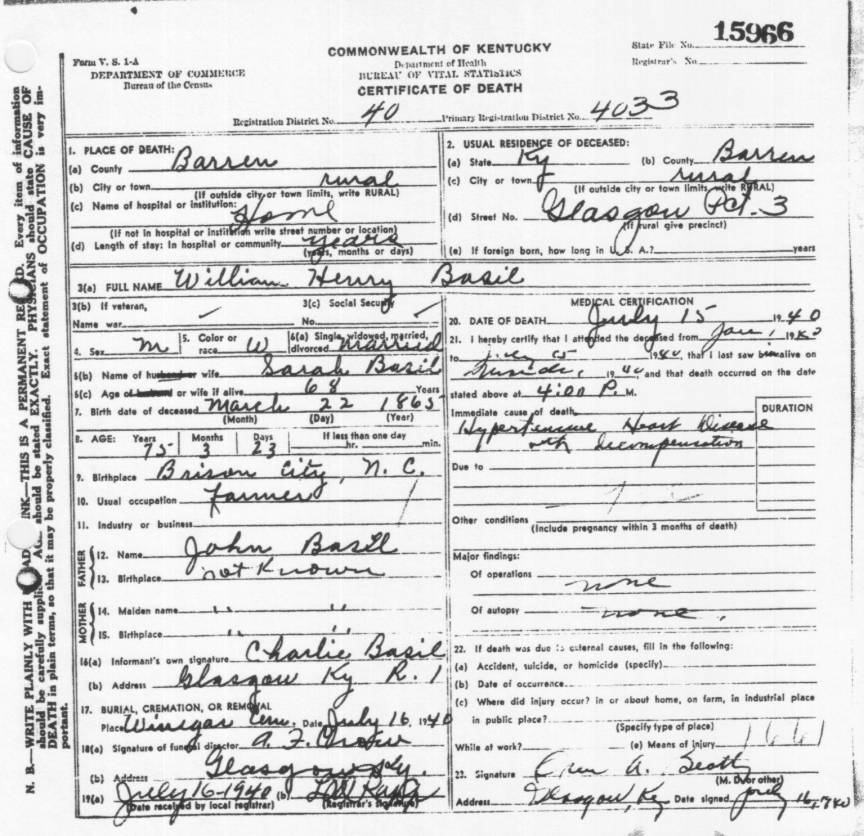 15966
COMMONWEALTH OF KENTUCKY
State File No.
Form V. S. 1-A
Department of Health
Registrar's No.
DEPARTMENT OF COMMERCE
BUREAU OF VITAL STATISTICS
Bureau of the Census
CERTIFICATE OF DEATH
Registration District No. 40 Primary Registration District No. 4033
1. PLACE OF DEATH:
(a) County Barren
(b) City or town rural
(If outside city or town limits, write RURAL)
(c) Name of hospital or institution: Home
(If not in hospital or institution write street number or location)
(d) Length of stay: In hospital or community years
(years, months or days)
2. USUAL RESIDENCE OF DECEASED:
(a) State Ky (b) County Barren
(c) City or town rural
(If outside city or town limits, write RURAL)
(d) Street No. Glasgow Pct. 3
(If rural give precinct)
(e) If foreign born, how long in U. S. A.? years
3(a) FULL NAME William Henry Basil
3(b) If veteran, 3(c) Social Security
Name war No.
4. Sex M 5. Color or race W 6(a) Single, widowed, married, divorced married
6(b) Name of husband or wife Sarah Basil
6(c) Age of husband or wife if alive 68 Years
7. Birth date of deceased March 22 1865
(Month) (Day) (Year)
8. AGE: Years Months Days If less than one day
75 3 23 hr. min.
9. Birthplace Brison City, N. C.
10. Usual occupation Farmer
11. Industry or business
FATHER
12. Name John Basil
13. Birthplace not Known
MOTHER
14. Maiden name " "
15. Birthplace " "
16(a) Informant's own signature Charlie Basil
(b) Address Glasgow Ky R. 1
17. BURIAL, CREMATION, OR REMOVAL
Place Winegar Cem. Date July 16, 1940
18(a) Signature of funeral director A. F. Crow
(b) Address Glasgow Ky.
19(a) July 16-1940 (b)
(Date received by local registrar) (Registrar's signature)
MEDICAL CERTIFICATION
20. DATE OF DEATH July 15 1940
21. I hereby certify that I attended the deceased from Jan, 1940
to July 15 1940, that I last saw him alive on
1940, and that death occurred on the date
stated above at 4:00 P. M.
DURATION
Immediate cause of death
Hypertensive Heart Disease
with decompensation
Due to
Other conditions
(Include pregnancy within 3 months of death)
Major findings:
Of operations none
Of autopsy none.
22. If death was due to external causes, fill in the following:
(a) Accident, suicide, or homicide (specify)
(b) Date of occurrence
(c) Where did injury occur? in or about home, on farm, in industrial place
in public place?
(Specify type of place)
While at work? (e) Means of injury
23. Signature A. Scott
(M. D. or other)
Address Glasgow, Ky Date signed July 16, 1940
N. B.—WRITE PLAINLY WITH INK—THIS IS A PERMANENT Every item of information
should be carefully AGE should be stated EXACTLY. PHYSICIANS should state CAUSE OF
DEATH in plain terms, so that it may be properly classified. Exact statement of OCCUPATION is very im-
portant.